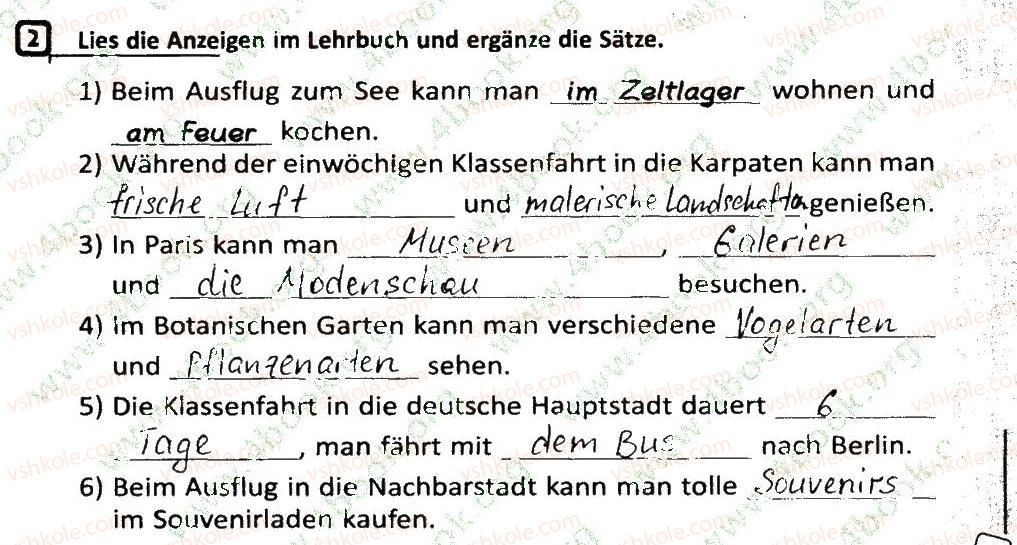 2 Lies die Anzeigen im Lehrbuch und ergänze die Sätze.
1) Beim Ausflug zum See kann man im Zeltlager wohnen und
am Feuer kochen.
2) Während der einwöchigen Klassenfahrt in die Karpaten kann man
frische Luft und malerische Landschaften genießen.
3) In Paris kann man Museen, Galerien
und die Modenschau besuchen.
4) Im Botanischen Garten kann man verschiedene Vogelarten
und Pflanzenarten sehen.
5) Die Klassenfahrt in die deutsche Hauptstadt dauert 6
Tage, man fährt mit dem Bus nach Berlin.
6) Beim Ausflug in die Nachbarstadt kann man tolle Souvenirs
im Souvenirladen kaufen.